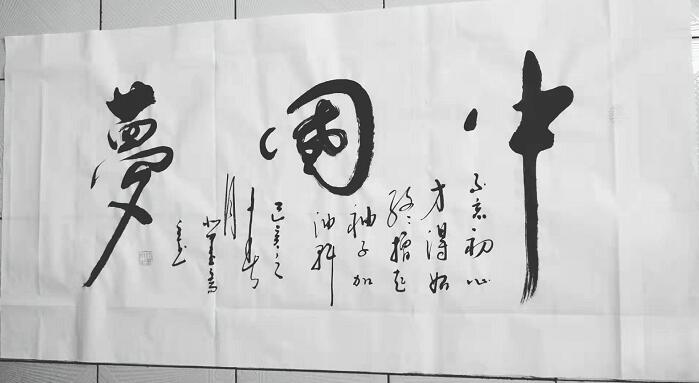 中國夢
不忘初心
方得始
終撸起
袖子加
油幹
己亥之
月